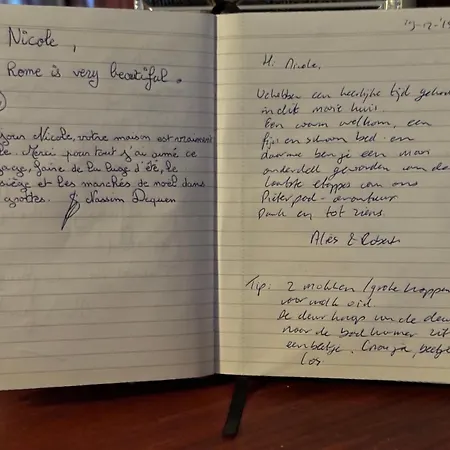 Nicole,
Rome is very beautiful.
jour Nicole, votre maison est vraiment
Merci pour tout j'ai aimé ce
faire de la luge d'été, le
siège et les marchés de noël dans
grottes. Nassim Dequen
Hi Nicole,
We hebben een heerlijke tijd gehad
in dit mooie huis.
Een warm welkom, een
fijn en schoon bed en
daarmee ben je een mooi
onderdeel geworden van de
laatste etappes van ons
Pieterpad-avontuur
Dank en tot ziens.
Alies & Robert
Tip: 2 mokken/grote koppen
voor
De deurknop van de deur
naar de badkamer zit
een beetje beetje
los